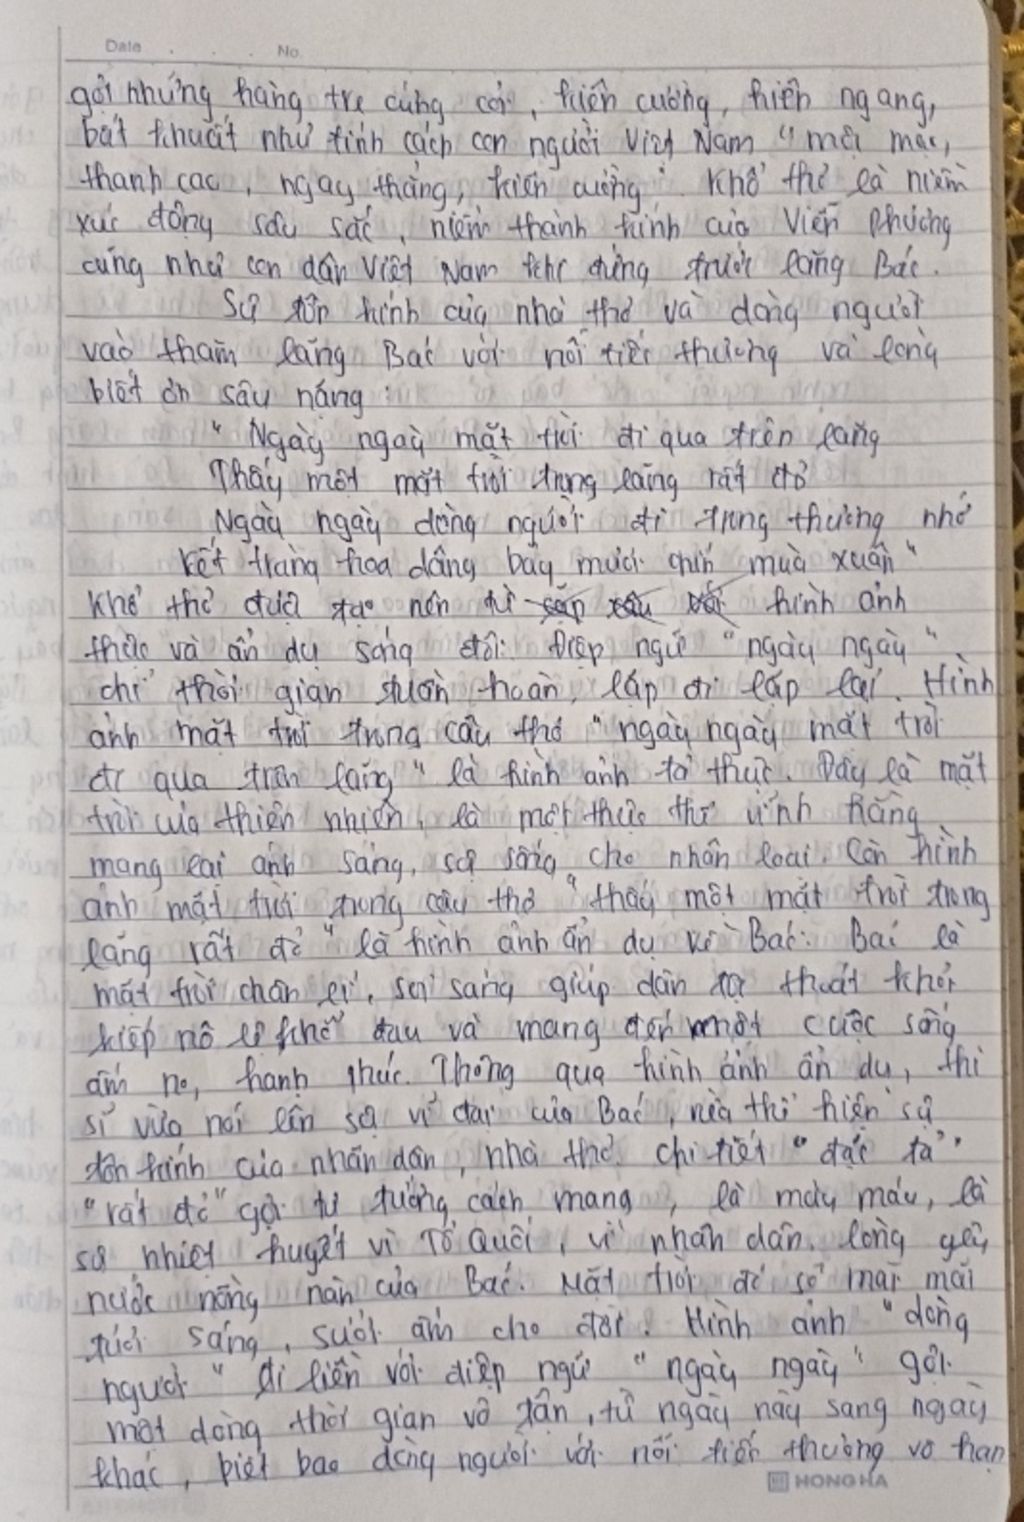 Date . . . No.
gợi những hàng tre cứng cỏi, kiên cường, hiên ngang,
bất khuất như tính cách con người Việt Nam "mộc mạc,
thanh cao, ngay thẳng, kiên cường". Khổ thơ là niềm
xúc động sâu sắc, niềm thành kính của Viễn Phương
cũng như con dân Việt Nam khi đứng trước lăng Bác.
Sự tôn kính của nhà thơ và dòng người
vào thăm lăng Bác với nỗi tiếc thương và lòng
biết ơn sâu nặng :
"Ngày ngày mặt trời đi qua trên lăng
Thấy một mặt trời trong lăng rất đỏ
Ngày ngày dòng người đi trong thương nhớ
Kết tràng hoa dâng bảy mươi chín mùa xuân"
Khổ thơ được tạo nên từ hình ảnh
thực và ẩn dụ sóng đôi. Điệp ngữ "ngày ngày"
chỉ thời gian tuần hoàn, lặp đi lặp lại. Hình
ảnh mặt trời trong câu thơ "ngày ngày mặt trời
đi qua trên lăng" là hình ảnh tả thực. Đây là mặt
trời của thiên nhiên, là một thực thể vĩnh hằng
mang lại ánh sáng, sự sống cho nhân loại. Còn hình
ảnh mặt trời trong câu thơ "thấy một mặt trời trong
lăng rất đỏ" là hình ảnh ẩn dụ về Bác. Bác là
mặt trời chân lí, soi sáng giúp dân ta thoát khỏi
kiếp nô lệ khổ đau và mang đến một cuộc sống
ấm no, hạnh phúc. Thông qua hình ảnh ẩn dụ, thi
sĩ vừa nói lên sự vĩ đại của Bác, vừa thể hiện sự
tôn kính của nhân dân, nhà thơ. chi tiết "đặc tả"
"rất đỏ" gợi tư tưởng cách mạng, là máu, là
sự nhiệt huyết vì Tổ Quốc, vì nhân dân. lòng yêu
nước nồng nàn của Bác. Mặt trời đó sẽ mãi mãi
tươi sáng, sưởi ấm cho đời. Hình ảnh "dòng
người" đi liền với điệp ngữ "ngày ngày" gợi
một dòng thời gian vô tận, từ ngày này sang ngày
khác, biết bao dòng người với nỗi tiếc thương vô hạn
HONG HA